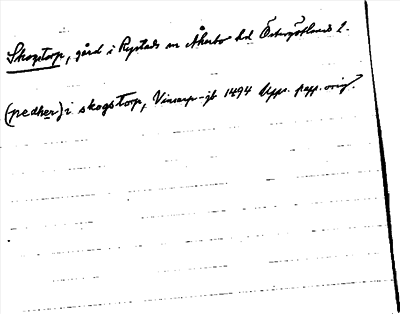 Skogstorp, gård i Rystads sn Åkerbo hd Östergötlands l.
(pedher) i skogstorp, Vinsarp-jb 1494 Upps. papp. orig.